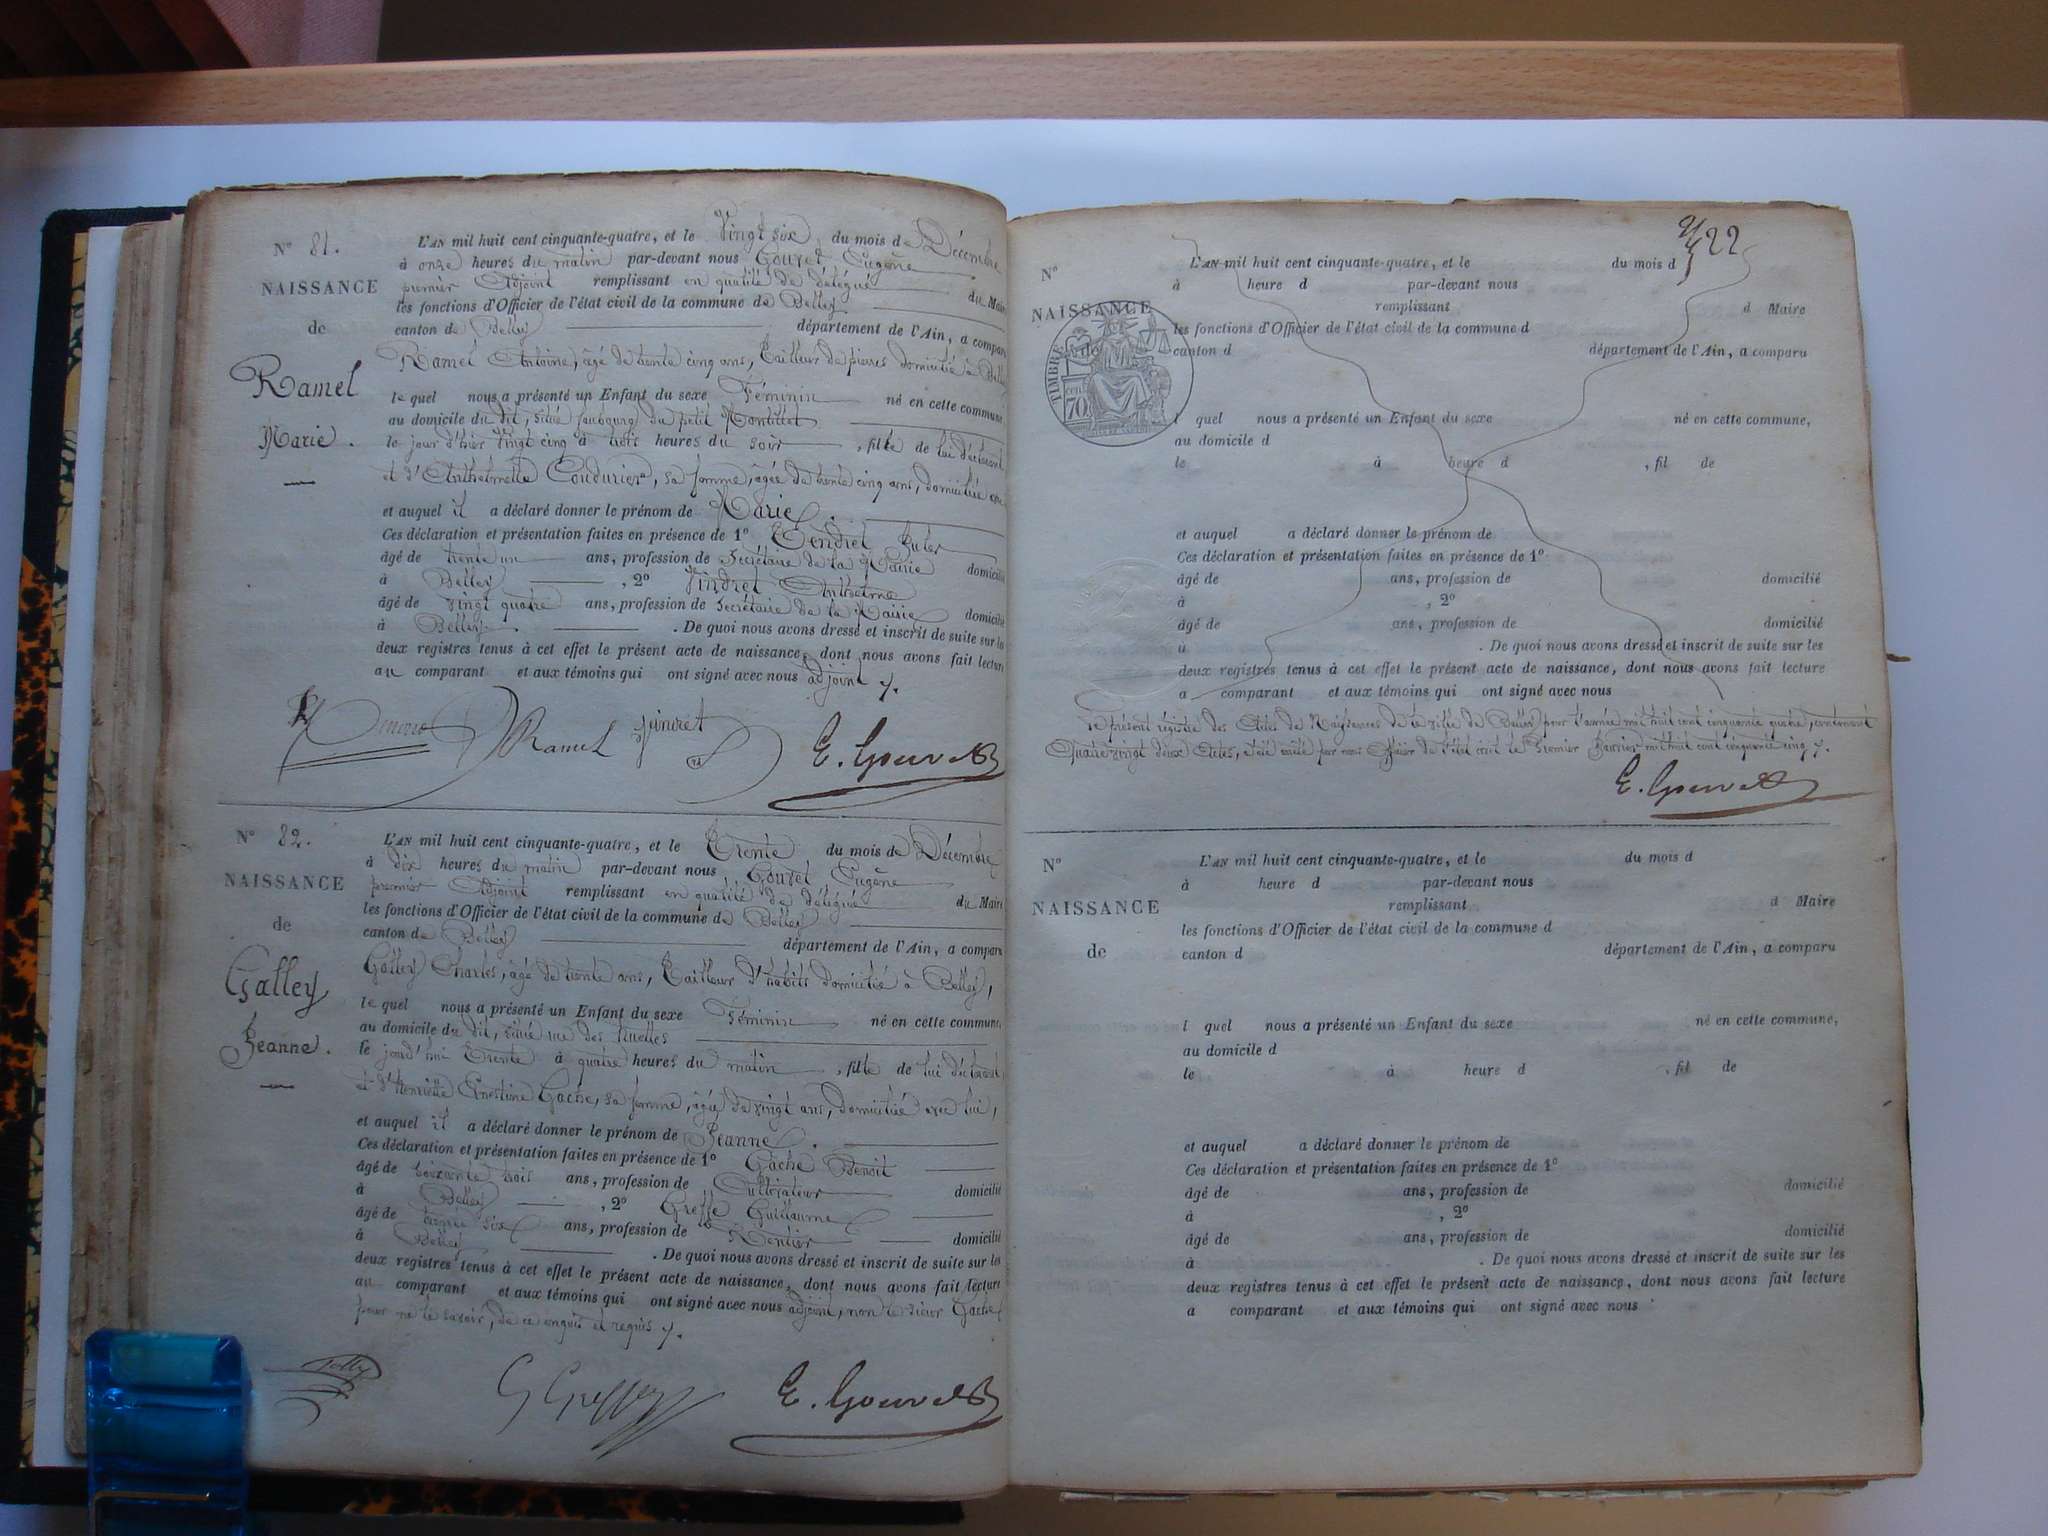 N° 81.
NAISSANCE
de
Ramel
Marie.
L'AN mil huit cent cinquante-quatre, et le Vingt six du mois de Décembre
à onze heures du matin par-devant nous Gouvet Eugène
premier Adjoint remplissant en qualité de délégué du Maire
les fonctions d'Officier de l'état civil de la commune de Belley
canton de Belley département de l'Ain, a comparu
Ramel Antoine, âgé de trente cinq ans, Tailleur de pierres domicilié à Belley
lequel nous a présenté un Enfant du sexe Féminin né en cette commune,
au domicile du dit, situé faubourg du petit Rontillet
le jour d'hier vingt cinq à trois heures du soir, fille de lui déclarant
et d'Anthelmette Coudurier, sa femme, âgée de trente cinq ans, domiciliée avec
et auquel il a déclaré donner le prénom de Marie.
Ces déclaration et présentation faites en présence de 1° Tendret Jules
âgé de trente un ans, profession de Secrétaire de la Mairie domicilié
à Belley, 2° Vindret Anthelme
âgé de vingt quatre ans, profession de secrétaire de la Mairie domicilié
à Belley. De quoi nous avons dressé et inscrit de suite sur les
deux registres tenus à cet effet le présent acte de naissance, dont nous avons fait lecture
au comparant et aux témoins qui ont signé avec nous adjoint ./.
Ramel Vindret E. Gouvet
N° 82.
NAISSANCE
de
Galley
Jeanne.
L'AN mil huit cent cinquante-quatre, et le Trente du mois de Décembre
à dix heures du matin par-devant nous, Gouvet Eugène
premier Adjoint remplissant en qualité de délégué du Maire
les fonctions d'Officier de l'état civil de la commune de Belley
canton de Belley département de l'Ain, a comparu
Galley Charles, âgé de trente ans, Tailleur d'habits domicilié à Belley,
lequel nous a présenté un Enfant du sexe Féminin né en cette commune,
au domicile du dit, situé rue des ruelles
le jourd'hui Trente à quatre heures du matin, fille de lui déclarant
et d'Henriette Ernestine Gache, sa femme, âgée de vingt ans, domiciliée avec lui,
et auquel il a déclaré donner le prénom de Jeanne.
Ces déclaration et présentation faites en présence de 1° Gache Benoit
âgé de soixante trois ans, profession de Cultivateur domicilié
à Belley, 2° Greffe Guillaume
âgé de trente six ans, profession de Rentier domicilié
à Belley. De quoi nous avons dressé et inscrit de suite sur les
deux registres tenus à cet effet le présent acte de naissance, dont nous avons fait lecture
au comparant et aux témoins qui ont signé avec nous adjoint, non le sieur Gache
pour ne le savoir, de ce enquis et requis ./.
Galley G Greffe E. Gouvet
22
N°
NAISSANCE
de
TIMBRE
70
L'AN mil huit cent cinquante-quatre, et le du mois d
à heure d par-devant nous
remplissant d Maire
les fonctions d'Officier de l'état civil de la commune d
canton d département de l'Ain, a comparu
l quel nous a présenté un Enfant du sexe né en cette commune,
au domicile d
le à heure d , fil de
et auquel a déclaré donner le prénom de
Ces déclaration et présentation faites en présence de 1°
âgé de ans, profession de domicilié
à , 2°
âgé de ans, profession de domicilié
à . De quoi nous avons dressé et inscrit de suite sur les
deux registres tenus à cet effet le présent acte de naissance, dont nous avons fait lecture
a comparant et aux témoins qui ont signé avec nous
Le présent régistre des Actes de Naissances de la ville de Belley pour l'année mil huit cent cinquante quatre, contenant
Quatre vingt deux Actes, a été arrêté par nous Officier de l'état civil le Premier Janvier mil huit cent cinquante cinq ./.
E. Gouvet
N°
NAISSANCE
de
L'AN mil huit cent cinquante-quatre, et le du mois d
à heure d par-devant nous
remplissant d Maire
les fonctions d'Officier de l'état civil de la commune d
canton d département de l'Ain, a comparu
l quel nous a présenté un Enfant du sexe né en cette commune,
au domicile d
le à heure d , fil de
et auquel a déclaré donner le prénom de
Ces déclaration et présentation faites en présence de 1°
âgé de ans, profession de domicilié
à , 2°
âgé de ans, profession de domicilié
à . De quoi nous avons dressé et inscrit de suite sur les
deux registres tenus à cet effet le présent acte de naissance, dont nous avons fait lecture
a comparant et aux témoins qui ont signé avec nous